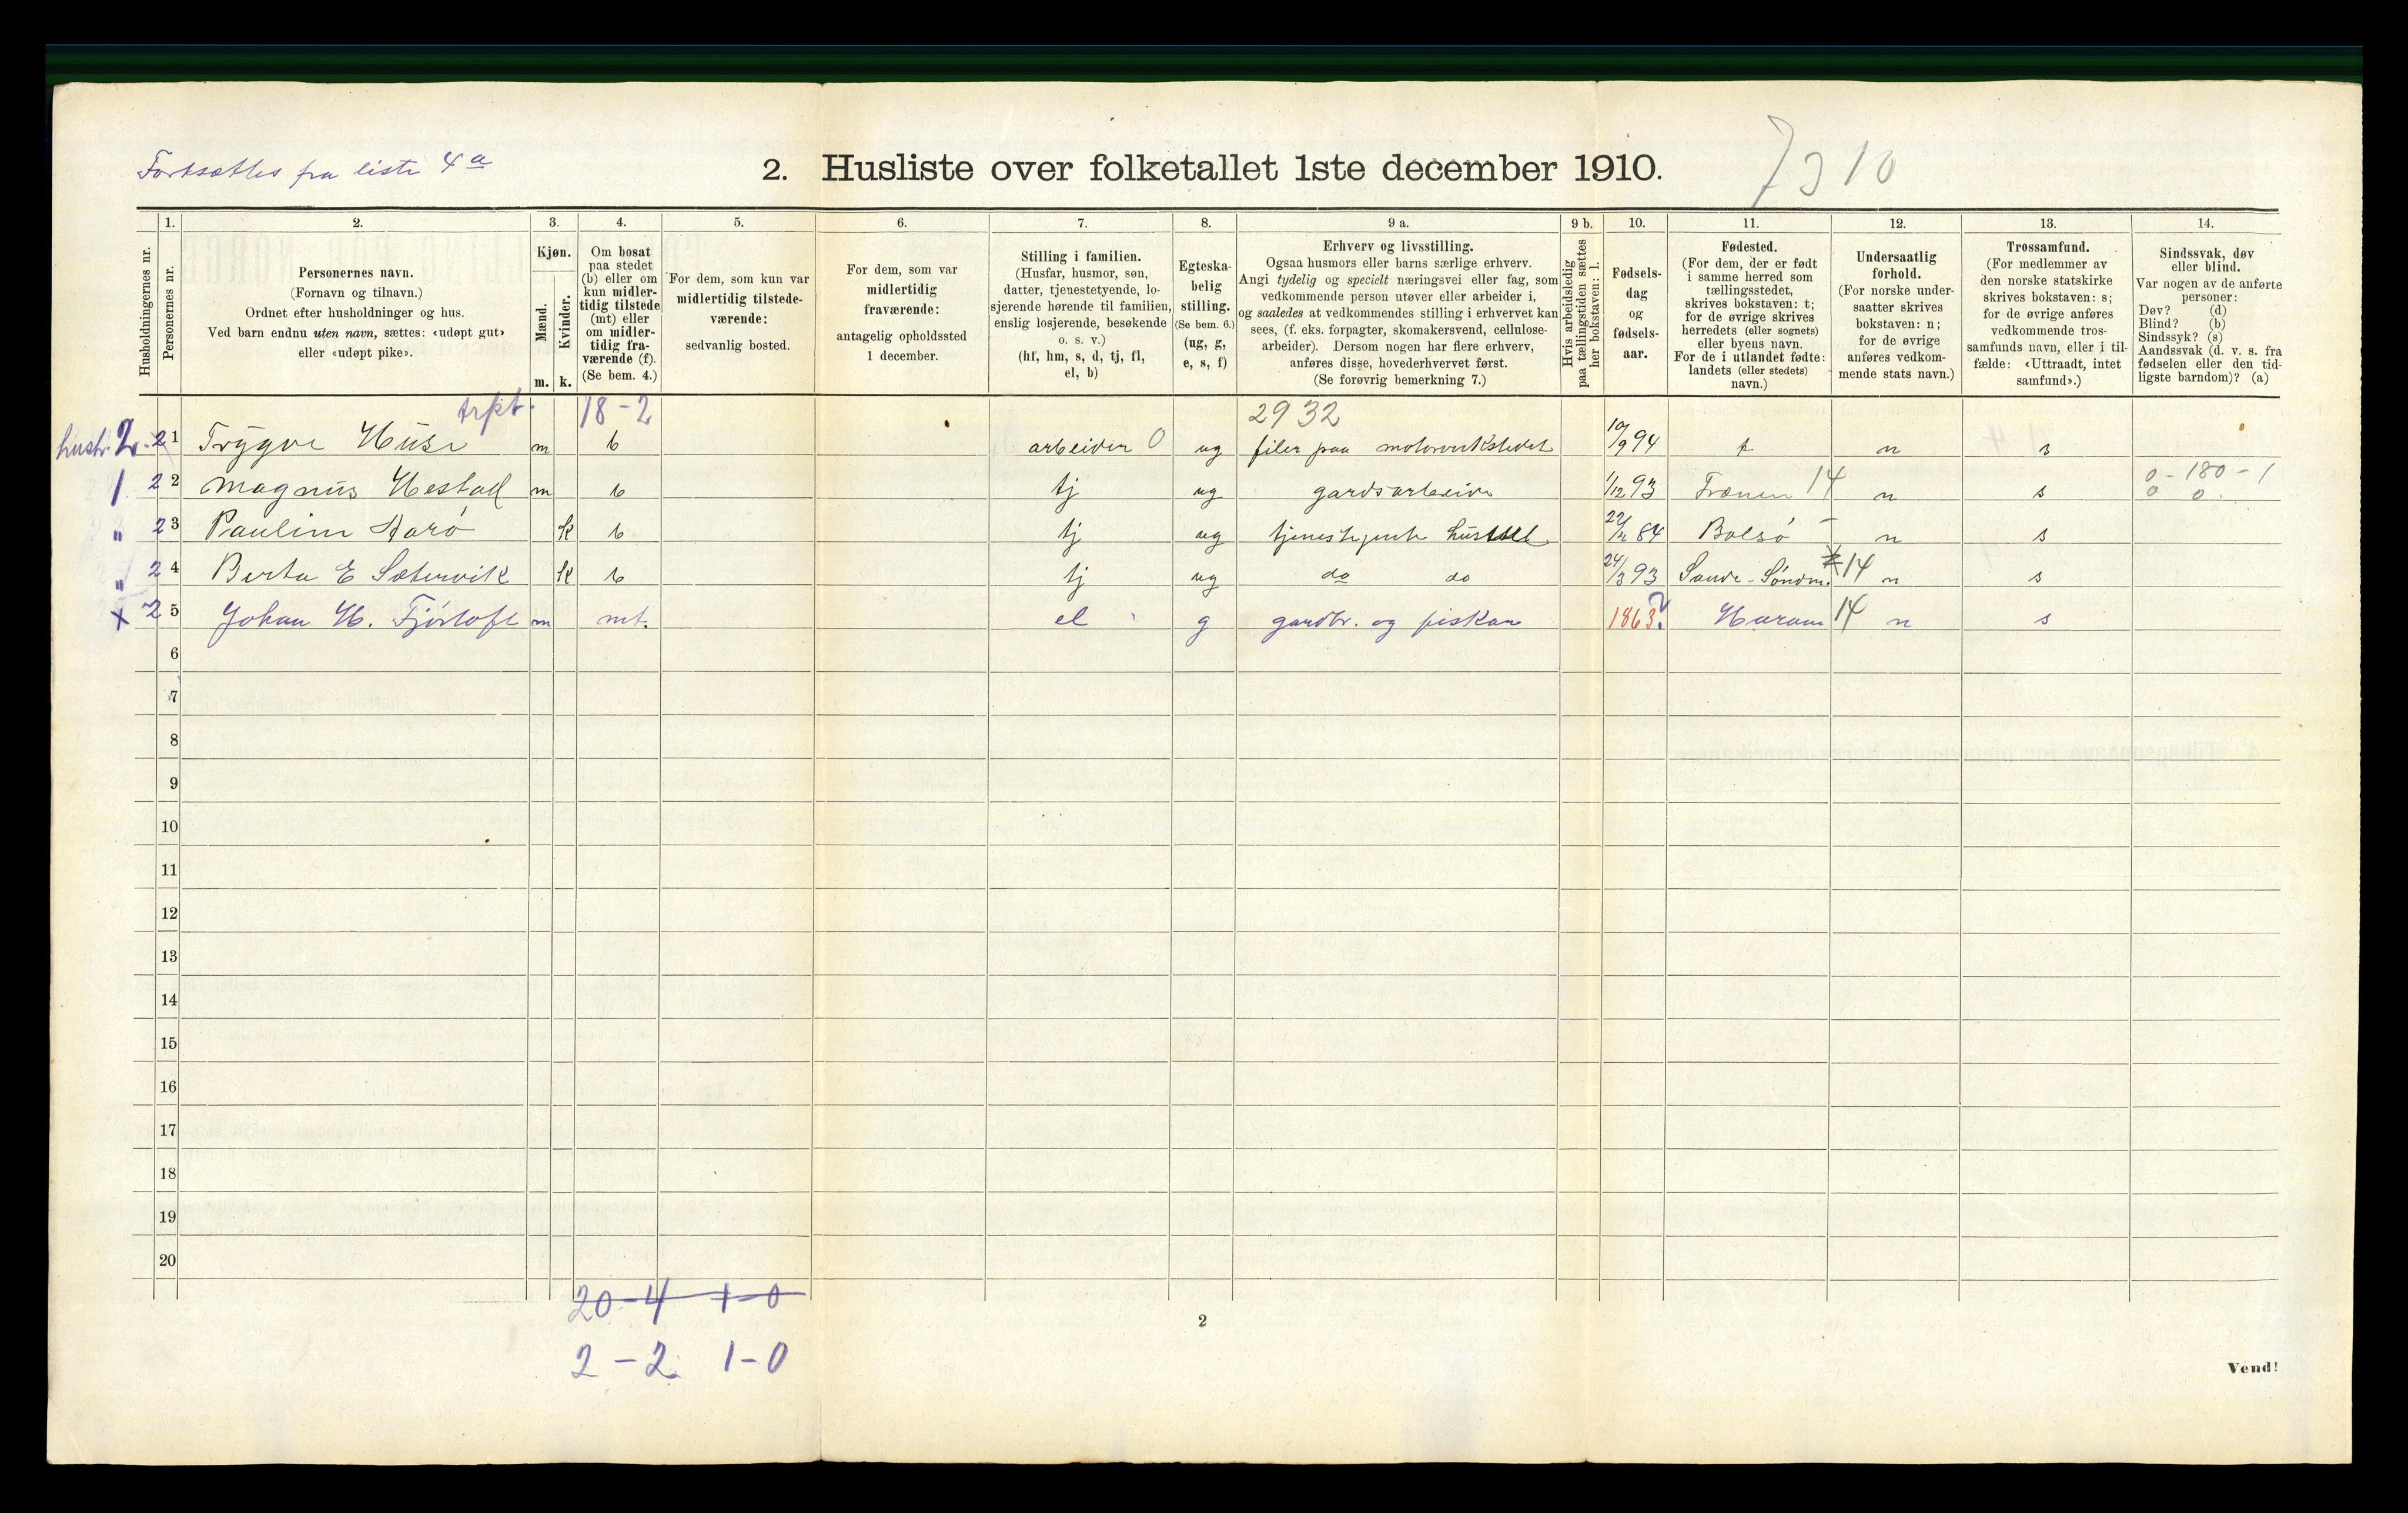 Fortsættes fra liste 4a
2. Husliste over folketallet 1ste december 1910.
7310
1. 2. 3. 4. 5. 6. 7. 8. 9 a. 9 b. 10. 11. 12. 13. 14.
Husholdningernes nr.
Personernes nr.
Personernes navn.
(Fornavn og tilnavn.)
Ordnet efter husholdninger og hus.
Ved barn endnu uten navn, sættes: «udøpt gut»
eller «udøpt pike».
Kjøn.
Mænd.
Kvinder.
m. k.
Om bosat
paa stedet
(b) eller om
kun midler-
tidig tilstede
(mt) eller
om midler-
tidig fra-
værende (f).
(Se bem. 4.)
For dem, som kun var
midlertidig tilstede-
værende:
sedvanlig bosted.
For dem, som var
midlertidig
fraværende:
antagelig opholdssted
1 december.
Stilling i familien.
(Husfar, husmor, søn,
datter, tjenestetyende, lo-
sjerende hørende til familien,
enslig losjerende, besøkende
o. s. v.)
(hf, hm, s, d, tj, fl,
el, b)
Egteska-
belig
stilling.
(Se bem. 6.)
(ug, g,
e, s, f)
Erhverv og livsstilling.
Ogsaa husmors eller barns særlige erhverv.
Angi tydelig og specielt næringsvei eller fag, som
vedkommende person utøver eller arbeider i,
og saaledes at vedkommendes stilling i erhvervet kan
sees, (f. eks. forpagter, skomakersvend, cellulose-
arbeider). Dersom nogen har flere erhverv,
anføres disse, hovederhvervet først.
(Se forøvrig bemerkning 7.)
Hvis arbeidsledig
paa tællingstiden sættes
her bokstaven: l.
Fødsels-
dag
og
fødsels-
aar.
Fødested.
(For dem, der er født
i samme herred som
tællingsstedet,
skrives bokstaven: t;
for de øvrige skrives
herredets (eller sognets)
eller byens navn.
For de i utlandet fødte:
landets (eller stedets)
navn.)
Undersaatlig
forhold.
(For norske under-
saatter skrives
bokstaven: n;
for de øvrige
anføres vedkom-
mende stats navn.)
Trossamfund.
(For medlemmer av
den norske statskirke
skrives bokstaven: s;
for de øvrige anføres
vedkommende tros-
samfunds navn, eller i til-
fælde: «Uttraadt, intet
samfund».)
Sindssvak, døv
eller blind.
Var nogen av de anførte
personer:
Døv? (d)
Blind? (b)
Sindssyk? (s)
Aandssvak (d. v. s. fra
fødselen eller den tid-
ligste barndom)? (a)
18-2 2932
2. 21 Trygve Huse m b arbeider 0 ug filer paa motorverkstedet 10/9 94 t n s
1 22 Magnus Hestad m b tj ug gardsarbeider 1/12 93 Frænen 14 n s 0-180-1
0 0
" 23 Pauline Harø k b tj ug tjenestejente 84 Bolsø - n s
" 24 Berta E Sætervik k b tj ug do do 24/3 93 Sande-Søndm. 14 n s
x 25 Johan H. Fjørtoft m mt. el g gardbr. og fisker 1863? Haram 14 n s
6
7
8
9
10
11
12
13
14
15
16
17
18
19
20
20-4 1-0
2-2 1-0
2
Vend!